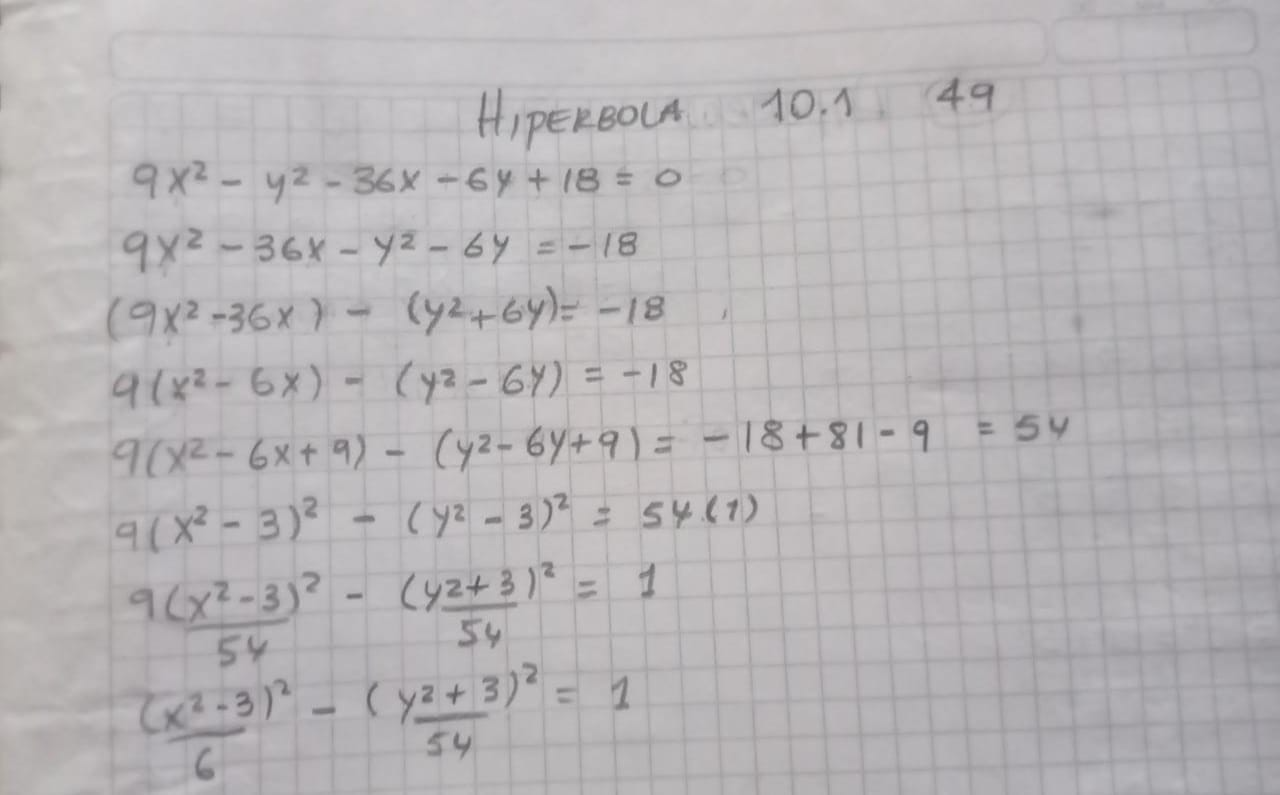 HIPERBOLA 10.1 49
9x² - y² - 36x - 6y + 18 = 0
9x² - 36x - y² - 6y = -18
(9x² - 36x) - (y² + 6y) = -18
9(x² - 6x) - (y² - 6y) = -18
9(x² - 6x + 9) - (y² - 6y + 9) = -18 + 81 - 9 = 54
9(x² - 3)² - (y² - 3)² = 54(1)
9(x² - 3)²/54 - (y² + 3)²/54 = 1
(x² - 3)²/6 - (y² + 3)²/54 = 1